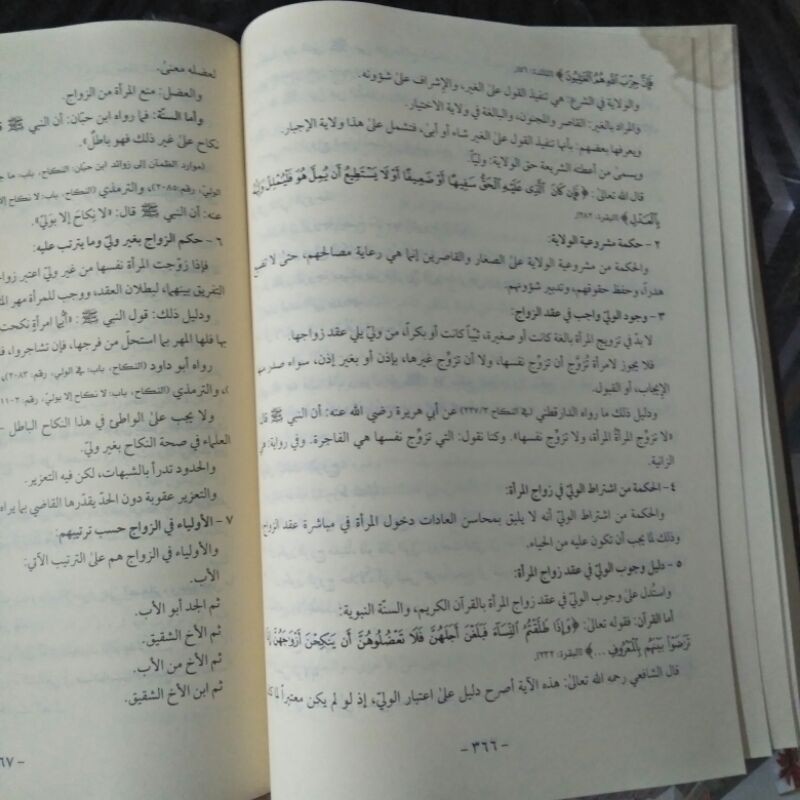 فَإِنَّ حِزْبَ اللَّهِ هُمُ الْغَالِبُونَ﴾ [المائدة: ٥٦].
والولاية في الشرع: هي تنفيذ القول على الغير، والإشراف على شؤونه.
والمراد بالغير: القاصر والمجنون، والبالغة في ولاية الاختيار.
ويعرفها بعضهم: بأنها تنفيذ القول على الغير شاء أو أبى، فتشمل على هذا ولاية الإجبار.
ويسمى من أعطته الشريعة حق الولاية: وليّاً.
قال الله تعالى: ﴿فَإِن كَانَ الَّذِي عَلَيْهِ الْحَقُّ سَفِيهًا أَوْ ضَعِيفًا أَوْ لَا يَسْتَطِيعُ أَن يُمِلَّ هُوَ فَلْيُمْلِلْ وَلِيُّهُ
بِالْعَدْلِ﴾ [البقرة: ٢٨٢].
٢ - حكمة مشروعية الولاية:
والحكمة من مشروعية الولاية على الصغار والقاصرين إنما هي رعاية مصالحهم، حتى لا تضيع
هدراً، وحفظ حقوقهم، وتدبير شؤونهم.
٣ - وجود الوليّ واجب في عقد الزواج:
لا بدّ في تزويج المرأة بالغة كانت أو صغيرة، ثيّباً كانت أو بكراً، من وليّ يلي عقد زواجها.
فلا يجوز لامرأة تُزوَّج أن تزوِّج نفسها، ولا أن تزوِّج غيرها، بإذن أو بغير إذن، سواء صدر منها
الإيجاب، أو القبول.
ودليل ذلك ما رواه الدارقطني (في النكاح ٢٢٧/٣) عن أبي هريرة رضي الله عنه: أن النبي ﷺ قال
«لا تزوِّج المرأةُ المرأة، ولا تزوِّج نفسها». وكنا نقول: التي تزوِّج نفسها هي الفاجرة. وفي رواية: هي
الزانية.
٤ - الحكمة من اشتراط الوليّ في زواج المرأة:
والحكمة من اشتراط الوليّ أنه لا يليق بمحاسن العادات دخول المرأة في مباشرة عقد الزواج
وذلك لما يجب أن تكون عليه من الحياء.
٥ - دليل وجوب الوليّ في عقد زواج المرأة:
واستُدل على وجوب الوليّ في عقد زواج المرأة بالقرآن الكريم، والسنّة النبوية:
أما القرآن: فقوله تعالى: ﴿وَإِذَا طَلَّقْتُمُ النِّسَاءَ فَبَلَغْنَ أَجَلَهُنَّ فَلَا تَعْضُلُوهُنَّ أَن يَنكِحْنَ أَزْوَاجَهُنَّ إِذَا
تَرَاضَوْا بَيْنَهُم بِالْمَعْرُوفِ ...﴾ [البقرة: ٢٣٢].
قال الشافعي رحمه الله تعالى: هذه الآية أصرح دليل على اعتبار الوليّ، إذ لو لم يكن معتبراً لما كان
- ٣٦٦ -
لعضله معنىً.
والعضل: منع المرأة من الزواج.
وأما السنّة: فما رواه ابن حبّان: أن النبي ﷺ
نكاح على غير ذلك فهو باطل».
(موارد الظمآن إلى زوائد ابن حبّان، النكاح، باب: ما
الوليّ، رقم: ٢٠٨٥)، والترمذي (النكاح، باب: لا نكاح إلا
عنه: أن النبي ﷺ قال: «لا نِكاحَ إلا بوَليّ».
٦ - حكم الزواج بغير وليّ وما يترتب عليه:
فإذا زوّجت المرأة نفسها من غير وليّ اعتبر
التفريق بينهما، لبطلان العقد، ووجب للمرأة مهر
ودليل ذلك: قول النبي ﷺ: «أيُّما امرأةٍ نكحت
بها فلها المهر بما استحلّ من فرجها، فإن تشاجروا،
رواه أبو داود (النكاح، باب: في الولي، رقم: ٢٠٨٣)،
والترمذي (النكاح، باب: لا نكاح إلا بوليّ، رقم:
ولا يجب على الواطئ في هذا النكاح الباطل
العلماء في صحة النكاح بغير وليّ.
والحدود تدرأ بالشبهات، لكن فيه التعزير.
والتعزير عقوبة دون الحدّ يقدّرها القاضي بما يراه
٧ - الأولياء في الزواج حسب ترتيبهم:
والأولياء في الزواج هم على الترتيب الآتي:
الأب.
ثم الجد أبو الأب.
ثم الأخ الشقيق.
ثم الأخ من الأب.
ثم ابن الأخ الشقيق.
٦٧ -